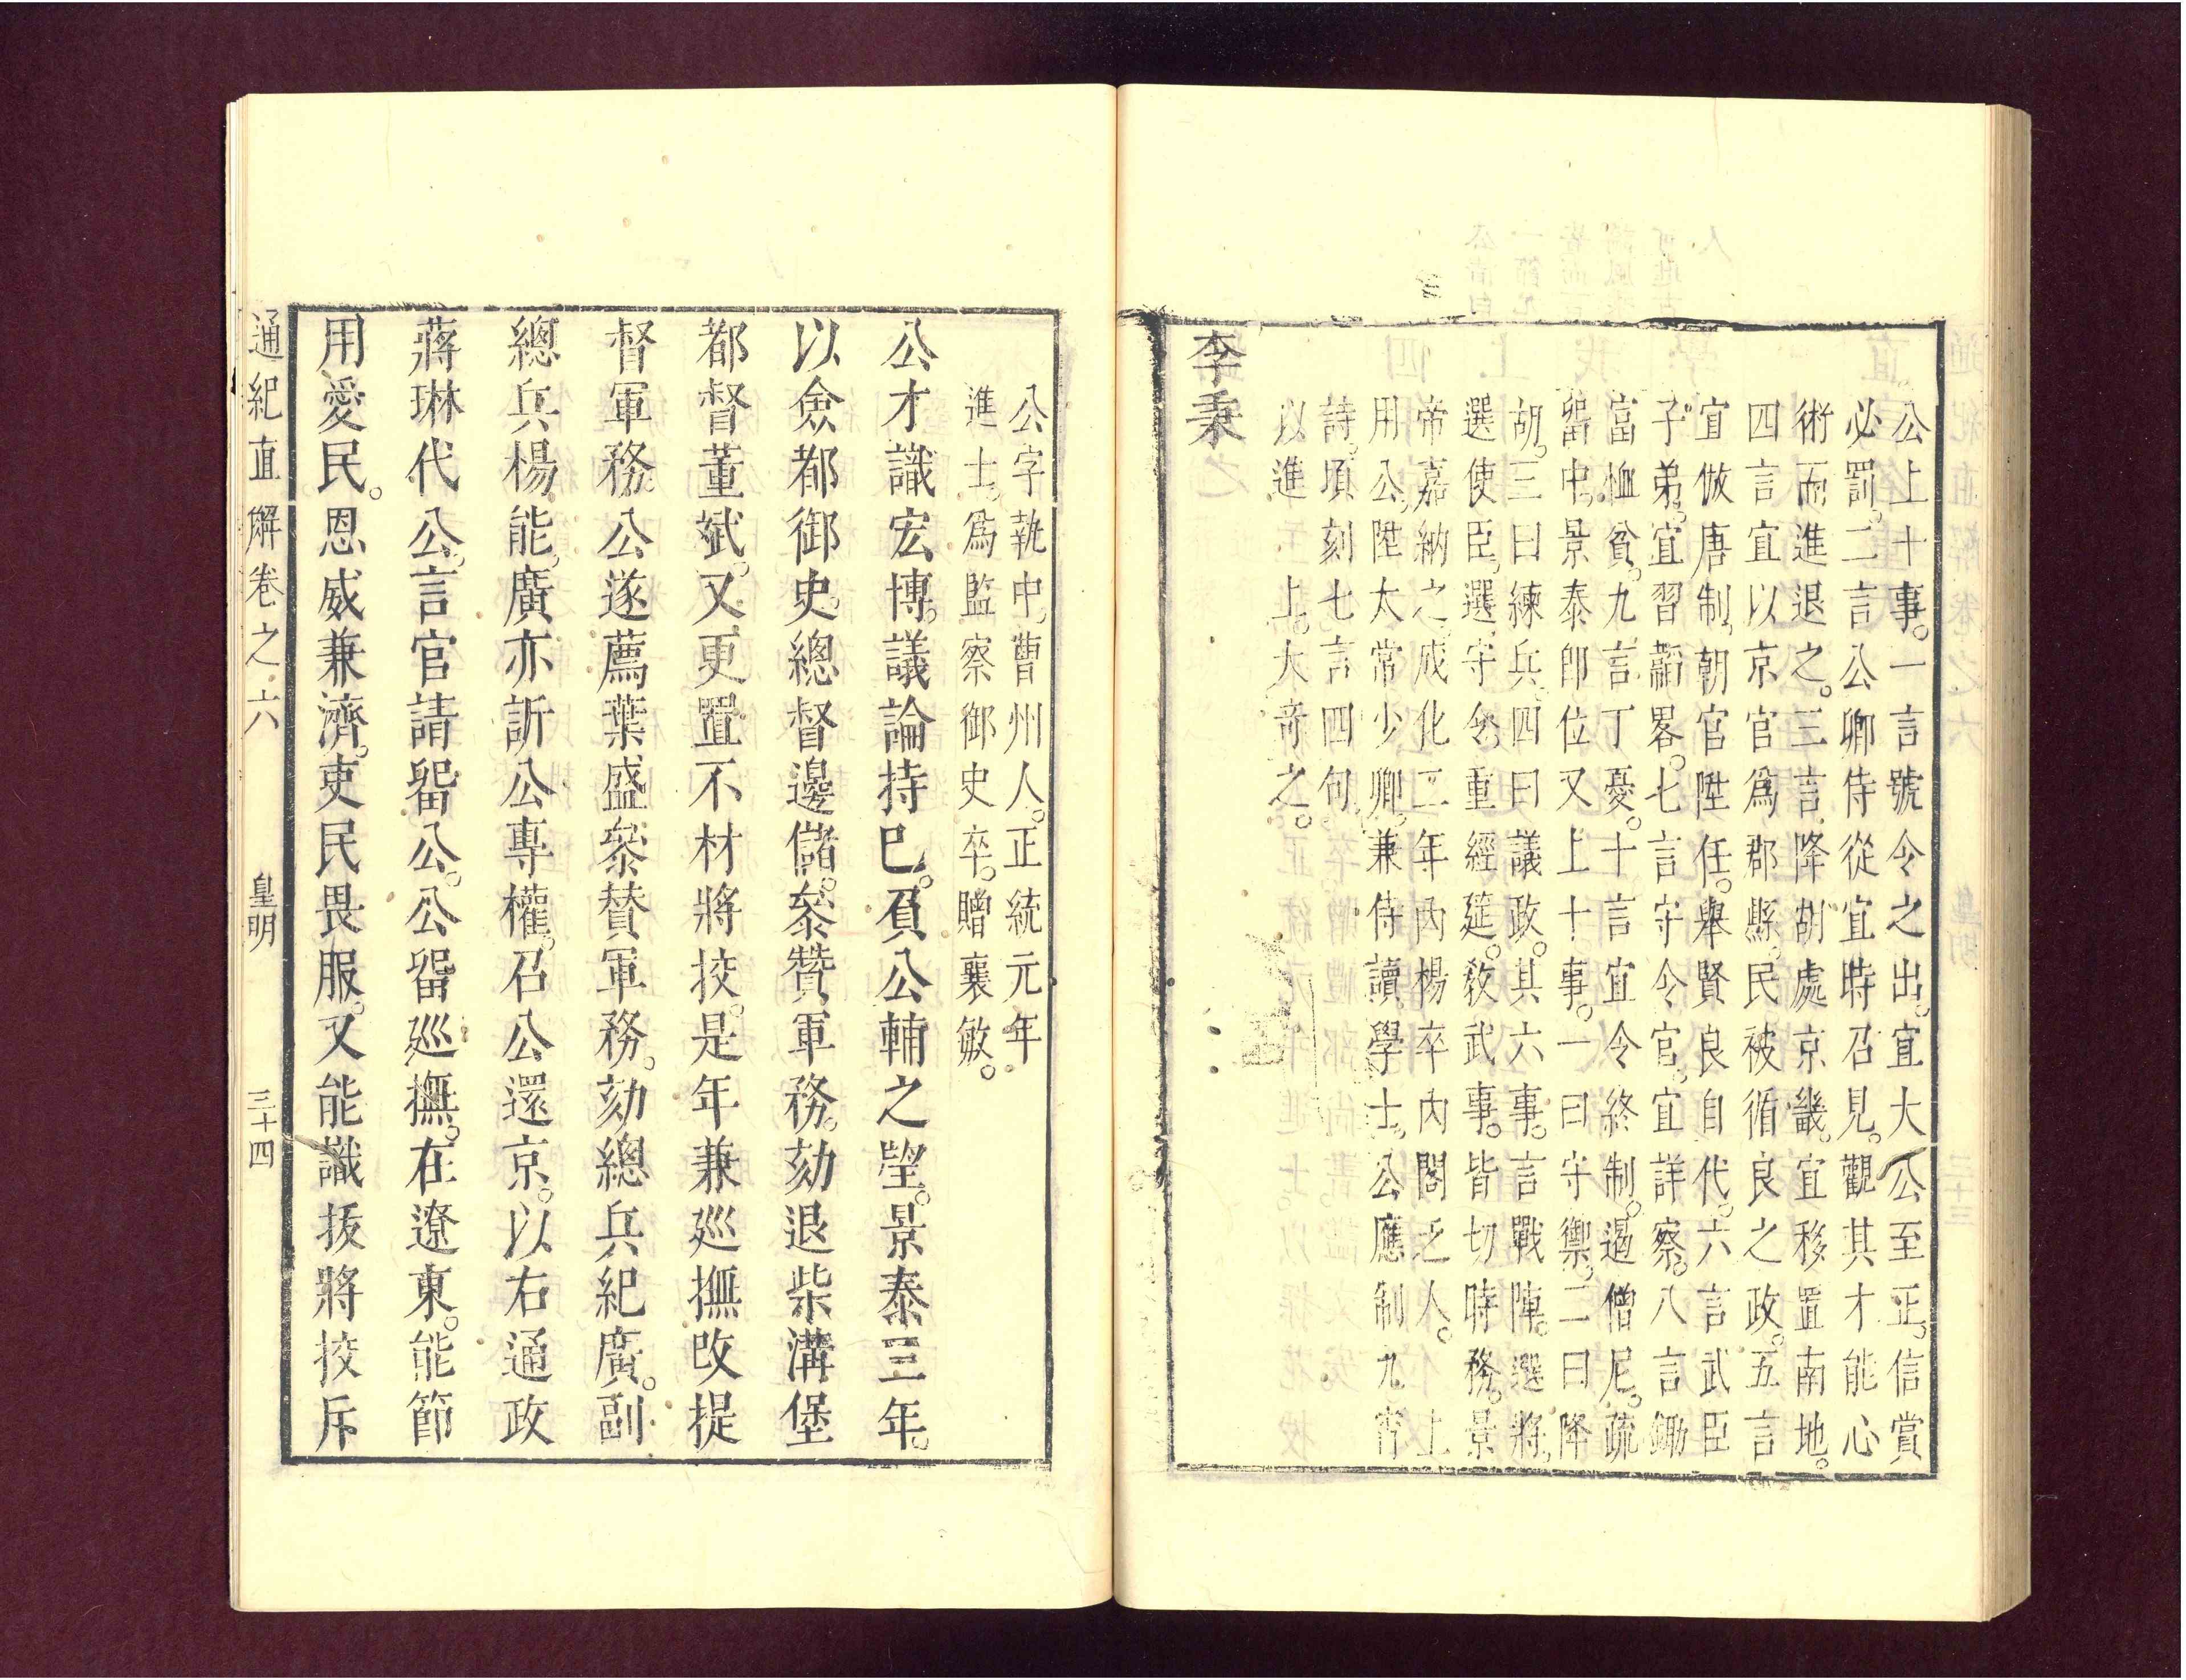 公上十事。一言號令之出。宜大公至正。信賞
必罰。二言公卿侍從宜時召見。觀其才能心
術而進退之。三言降胡處京畿。宜移置南地。
四言宜以京官爲郡縣。民被循良之政。五言
宜倣唐制朝官陞任。舉賢良自代。六言武臣
子弟。宜習韜畧。七言守令官。宜詳察。八言鋤
富恤貧。九言丁憂。十言宜令終制。遏僧尼。疏
留中。景泰即位又上十事。一曰守禦。二曰降
胡。三曰練兵。四曰議政。其六事。言戰陣。選將。
選使臣。選守令。重經筵。敎武事。皆切時務。景
帝嘉納之。成化二年內楊卒內閣乏人。上
用公。陞太常少卿。兼侍讀。學士。公應制九宵
詩。頃刻七言四句。
以進 上。大奇之。
李秉
公字執中。曹州人。正統元年
進士。爲監察御史卒。贈襄敏。
公才識宏博。議論持已。負公輔之望。景泰三年。
以僉都御史。總督邊儲。叅贊軍務。劾退柴溝堡
都督董斌。又更置不材將挍。是年兼廵撫改提
督軍務。公遂薦葉盛叅賛軍務。劾總兵紀廣。副
總兵楊能。廣亦訢公專權。召公還京。以右通政
蔣琳代公。言官請留公。公留廵撫。在遼東。能節
用愛民。恩威兼濟。吏民畏服。又能識拔將挍斥
通紀直解卷之六 皇明 三十四